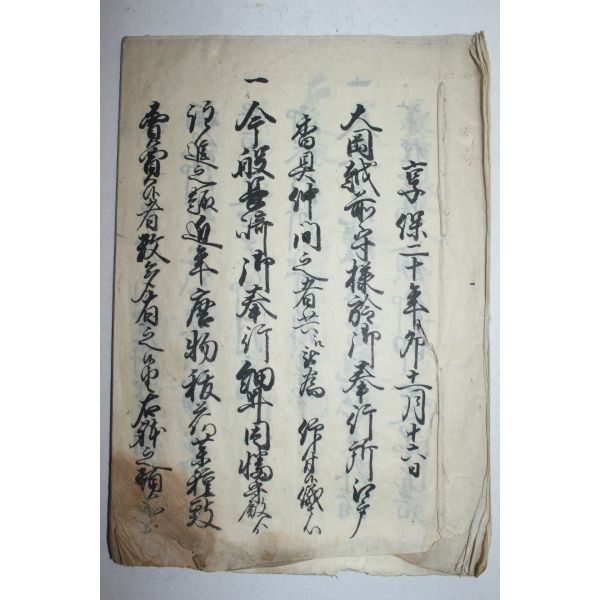 享保二十年卯十一月十六日
一 大岡越前守様於御奉行所江戸
香具仲間之者共江被為 仰付候儀
一 今般長崎御奉行細井因幡守殿ゟ
注進之趣近年唐物抜荷薬種致
売買候者数多有之候